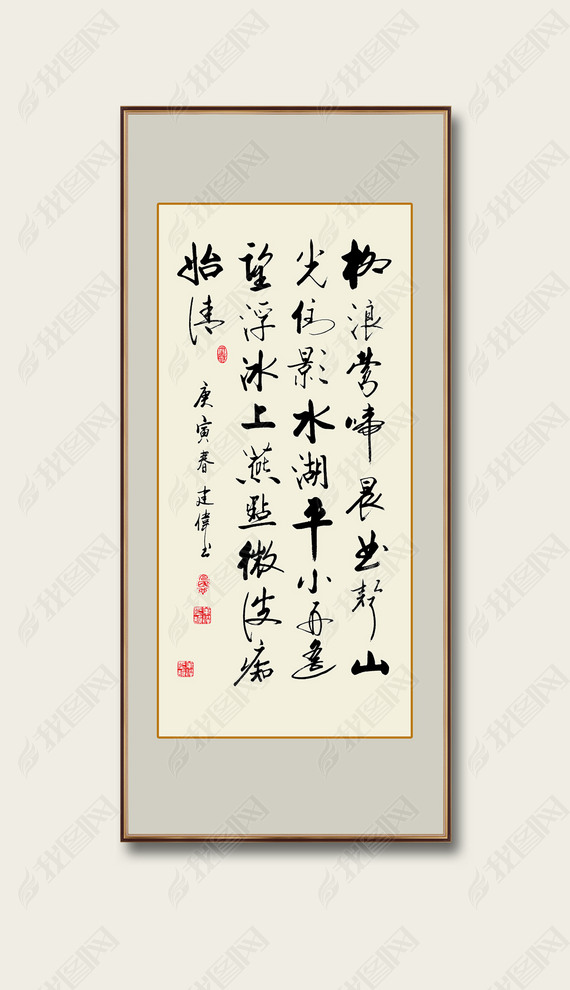 柳浪莺啼晨曲靜山
光倒影水湖平小舟遥
望浮冰上燕點微波痴
始清
庚寅春 建偉书
我图网